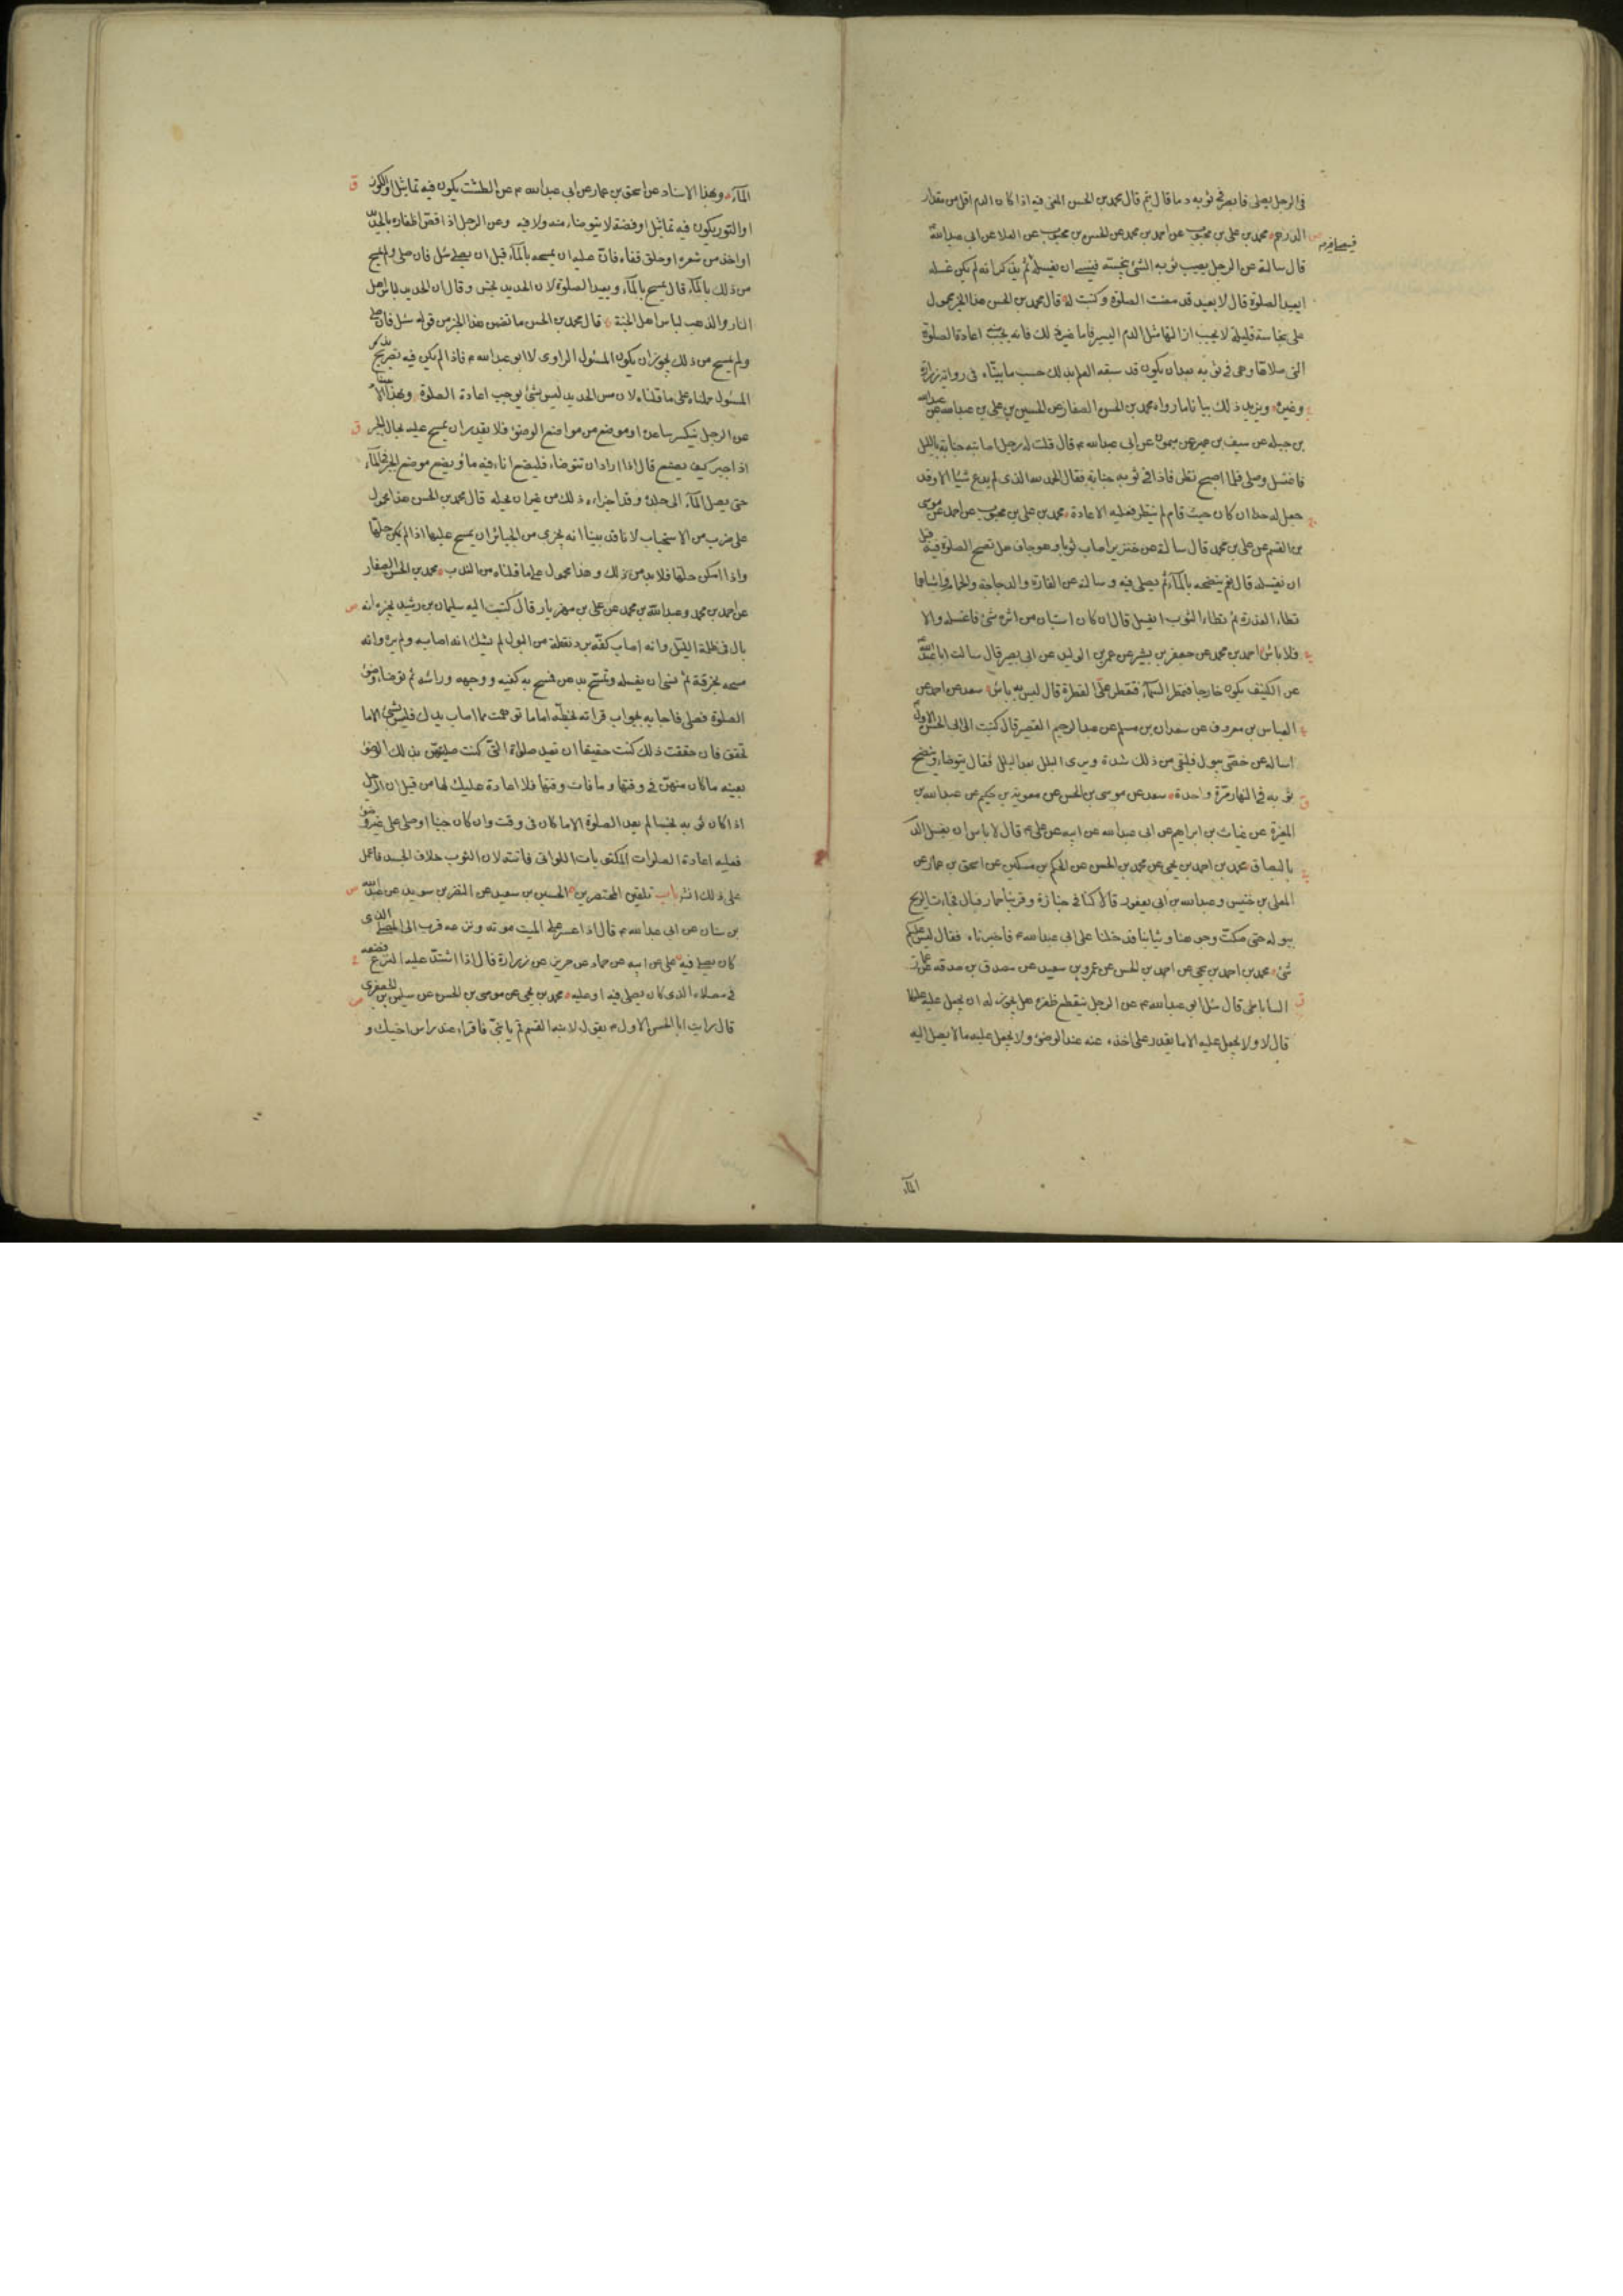 في الرجل يصلي فابصر في ثوبه دما قال يتم قال محمد بن الحسن المعنى فيه اذا كان الدم اقل من مقدار
الدرهم محمد بن علي بن محبوب عن احمد بن محمد عن الحسن بن محبوب عن العلا عن ابي عبد الله
قال سالته عن الرجل يصيب ثوبه الشئ ينجسه فينسى ان يغسله ثم يذكر انه لم يكن غسله
ايعيد الصلوة قال لا يعيد قد مضت الصلوة وكتبت له قال محمد بن الحسن هذا الخبر محمول
على نجاسة قليلة لا يجب ازالتها مثل الدم اليسير فاما غير ذلك فانه يجب اعادة الصلوة
التي صلاها وهي في ثوبه بعد ان يكون قد سبقه العلم بذلك حسب ما بيناه في رواية زرارة
وغيره ويزيد ذلك بيانا ما رواه محمد بن الحسن الصفار عن الحسين بن علي بن عبد الله عن عبد الله
بن جبله عن سيف عن ميمون عن ابي عبد الله م قال قلت له رجل اصابته جنابة بالليل
فاغتسل وصلى فلما اصبح نظر فاذا في ثوبه جنابة فقال الحمد لله الذي لم يدع شيئا الا وقد
جعل له حدا ان كان حيث قام لم ينظر فعليه الاعادة محمد بن علي بن محبوب عن احمد عن موسى
بن القسم عن علي بن محمد قال سالته عن خنزير اصاب ثوبا وهو جاف هل تصح الصلوة فيه قبل
ان يغسله قال نعم ينضحه بالماء ثم يصلي فيه وسالته عن الفارة والدجاجة والحمام واشباهها
تطاء العذرة ثم تطاء الثوب ايغسل قال ان كان استبان من اثره شئ فاغسله والا
فلا باس احمد بن محمد عن جعفر بن بشير عن عمر بن الوليد عن ابي بصير قال سالت ابا عبد الله
عن الكنيف يكون خارجا فتمطر السماء فتقطر علي القطرة قال ليس به باس سعد عن احمد عن
العباس بن معروف عن سعدان بن مسلم عن عبد الرحيم القصير قال كتبت الى ابي الحسن الاول
اساله عن خصي يبول فيلقى من ذلك شدة ويرى البلل بعد البلل فقال يتوضاء وينضح
ثوبه في النهار مرة واحدة سعد عن موسى بن الحسن عن معوية بن حكيم عن عبد الله بن
المغيرة عن غياث بن ابراهيم عن ابي عبد الله عن ابيه عن علي م قال لا باس ان يغسل الدم
بالبصاق محمد بن احمد بن يحيى عن محمد بن الحسن عن الحكم بن مسكين عن اسحق بن عمار عن
المعلى بن خنيس وعبد الله بن ابي يعفور قالا كنا في جنازة وقربنا حمار فبال فجاءت الريح
ببوله حتى صكت وجوهنا وثيابنا فدخلنا على ابي عبد الله م فاخبرناه فقال ليس عليكم
شئ محمد بن احمد بن يحيى عن احمد بن الحسن عن عمرو بن سعيد عن مصدق بن صدقه عن عمار
الساباطي قال سئل ابو عبد الله م عن الرجل ينقطع ظفره هل يجوز له ان يجعل عليه علكا
قال لا ولا يجعل عليه الا ما يقدر على اخذه عنه عند الوضوء ولا يجعل عليه ما لا يصل اليه
الماء
الماء وبهذا الاسناد عن اسحق بن عمار عن ابي عبد الله م عن الطشت يكون فيه تماثيل او الكوز
او التور يكون فيه تماثيل او فضة لا يتوضاء منه ولا فيه وعن الرجل اذا قص اظفاره بالحديد
او اخذ من شعره او حلق قفاه فان عليه ان يمسحه بالماء قبل ان يصلي سئل فان صلى ولم يمسح
من ذلك بالماء قال يمسح بالماء ويعيد الصلوة لان الحديد نجس وقال ان الحديد لباس اهل
النار والذهب لباس اهل الجنة قال محمد بن الحسن ما تضمن هذا الخبر من قوله سئل فان صلى
ولم يمسح من ذلك يجوز ان يكون المسئول الراوي لا ابو عبد الله م فاذا لم يكن فيه تصريح بذكر
المسئول حملناه على ما قلناه لان مس الحديد ليس بشئ يوجب اعادة الصلوة وبهذا الاسناد
عن الرجل ينكسر ساعده او موضع من مواضع الوضوء فلا يقدر ان يمسح عليه لحال الجبر
اذا جبر كيف يصنع قال اذا اراد ان يتوضاء فليضع اناء فيه ماء ويضع موضع الجبر في الماء
حتى يصل الماء الى جلده وقد اجزاه ذلك من غير ان يحله قال محمد بن الحسن هذا محمول
على ضرب من الاستحباب لانا قد بينا انه يجزي من الجبائر ان يمسح عليها اذا لم يمكن حلها
واذا امكن حلها فلا بد من ذلك وهذا محمول على ما قلناه من الندب محمد بن الحسن الصفار
عن احمد بن محمد وعبد الله بن محمد عن علي بن مهزيار قال كتب اليه سليمان بن رشيد يخبره انه
بال في ظلمة الليل وانه اصاب كفه برد نقطة من البول لم يشك انه اصابه ولم يره وانه
مسحه بخرقة ثم نسي ان يغسله وتمسح بدهن فمسح به كفيه ووجهه وراسه ثم توضاء وضوء
الصلوة فصلى فاجابه بجواب قراته بخطه اما ما توهمت مما اصاب يدك فليس بشئ الا ما
تحقق فان حققت ذلك كنت حقيقا ان تعيد صلواة التي كنت صليتهن بذلك الوضوء
بعينه ما كان منهن في وقتها وما فات وقتها فلا اعادة عليك لها من قبل ان الرجل
اذا كان ثوبه نجسا لم يعد الصلوة الا ما كان في وقت وان كان جنبا او صلى على غير وضوء
فعليه اعادة الصلوات المكتوبات اللواتي فاتته لان الثوب خلاف الجسد فاعمل
على ذلك انشاء باب تلقين المحتضرين الحسين بن سعيد عن النضر بن سويد عن عبد الله
بن سنان عن ابي عبد الله م قال اذا عسر على الميت موته ونزعه قرب الى المصلى الذي
كان يصلي فيه علي عن ابيه عن حماد عن حريز عن زرارة قال اذا اشتد عليه النزع فضعه
في مصلاه الذي كان يصلي فيه او عليه محمد بن يحيى عن موسى بن الحسن عن سليمن بن الجعفري
قال رايت ابا الحسن الاول م يقول لابنه القسم قم يا بني فاقراء عند راس اخيك و